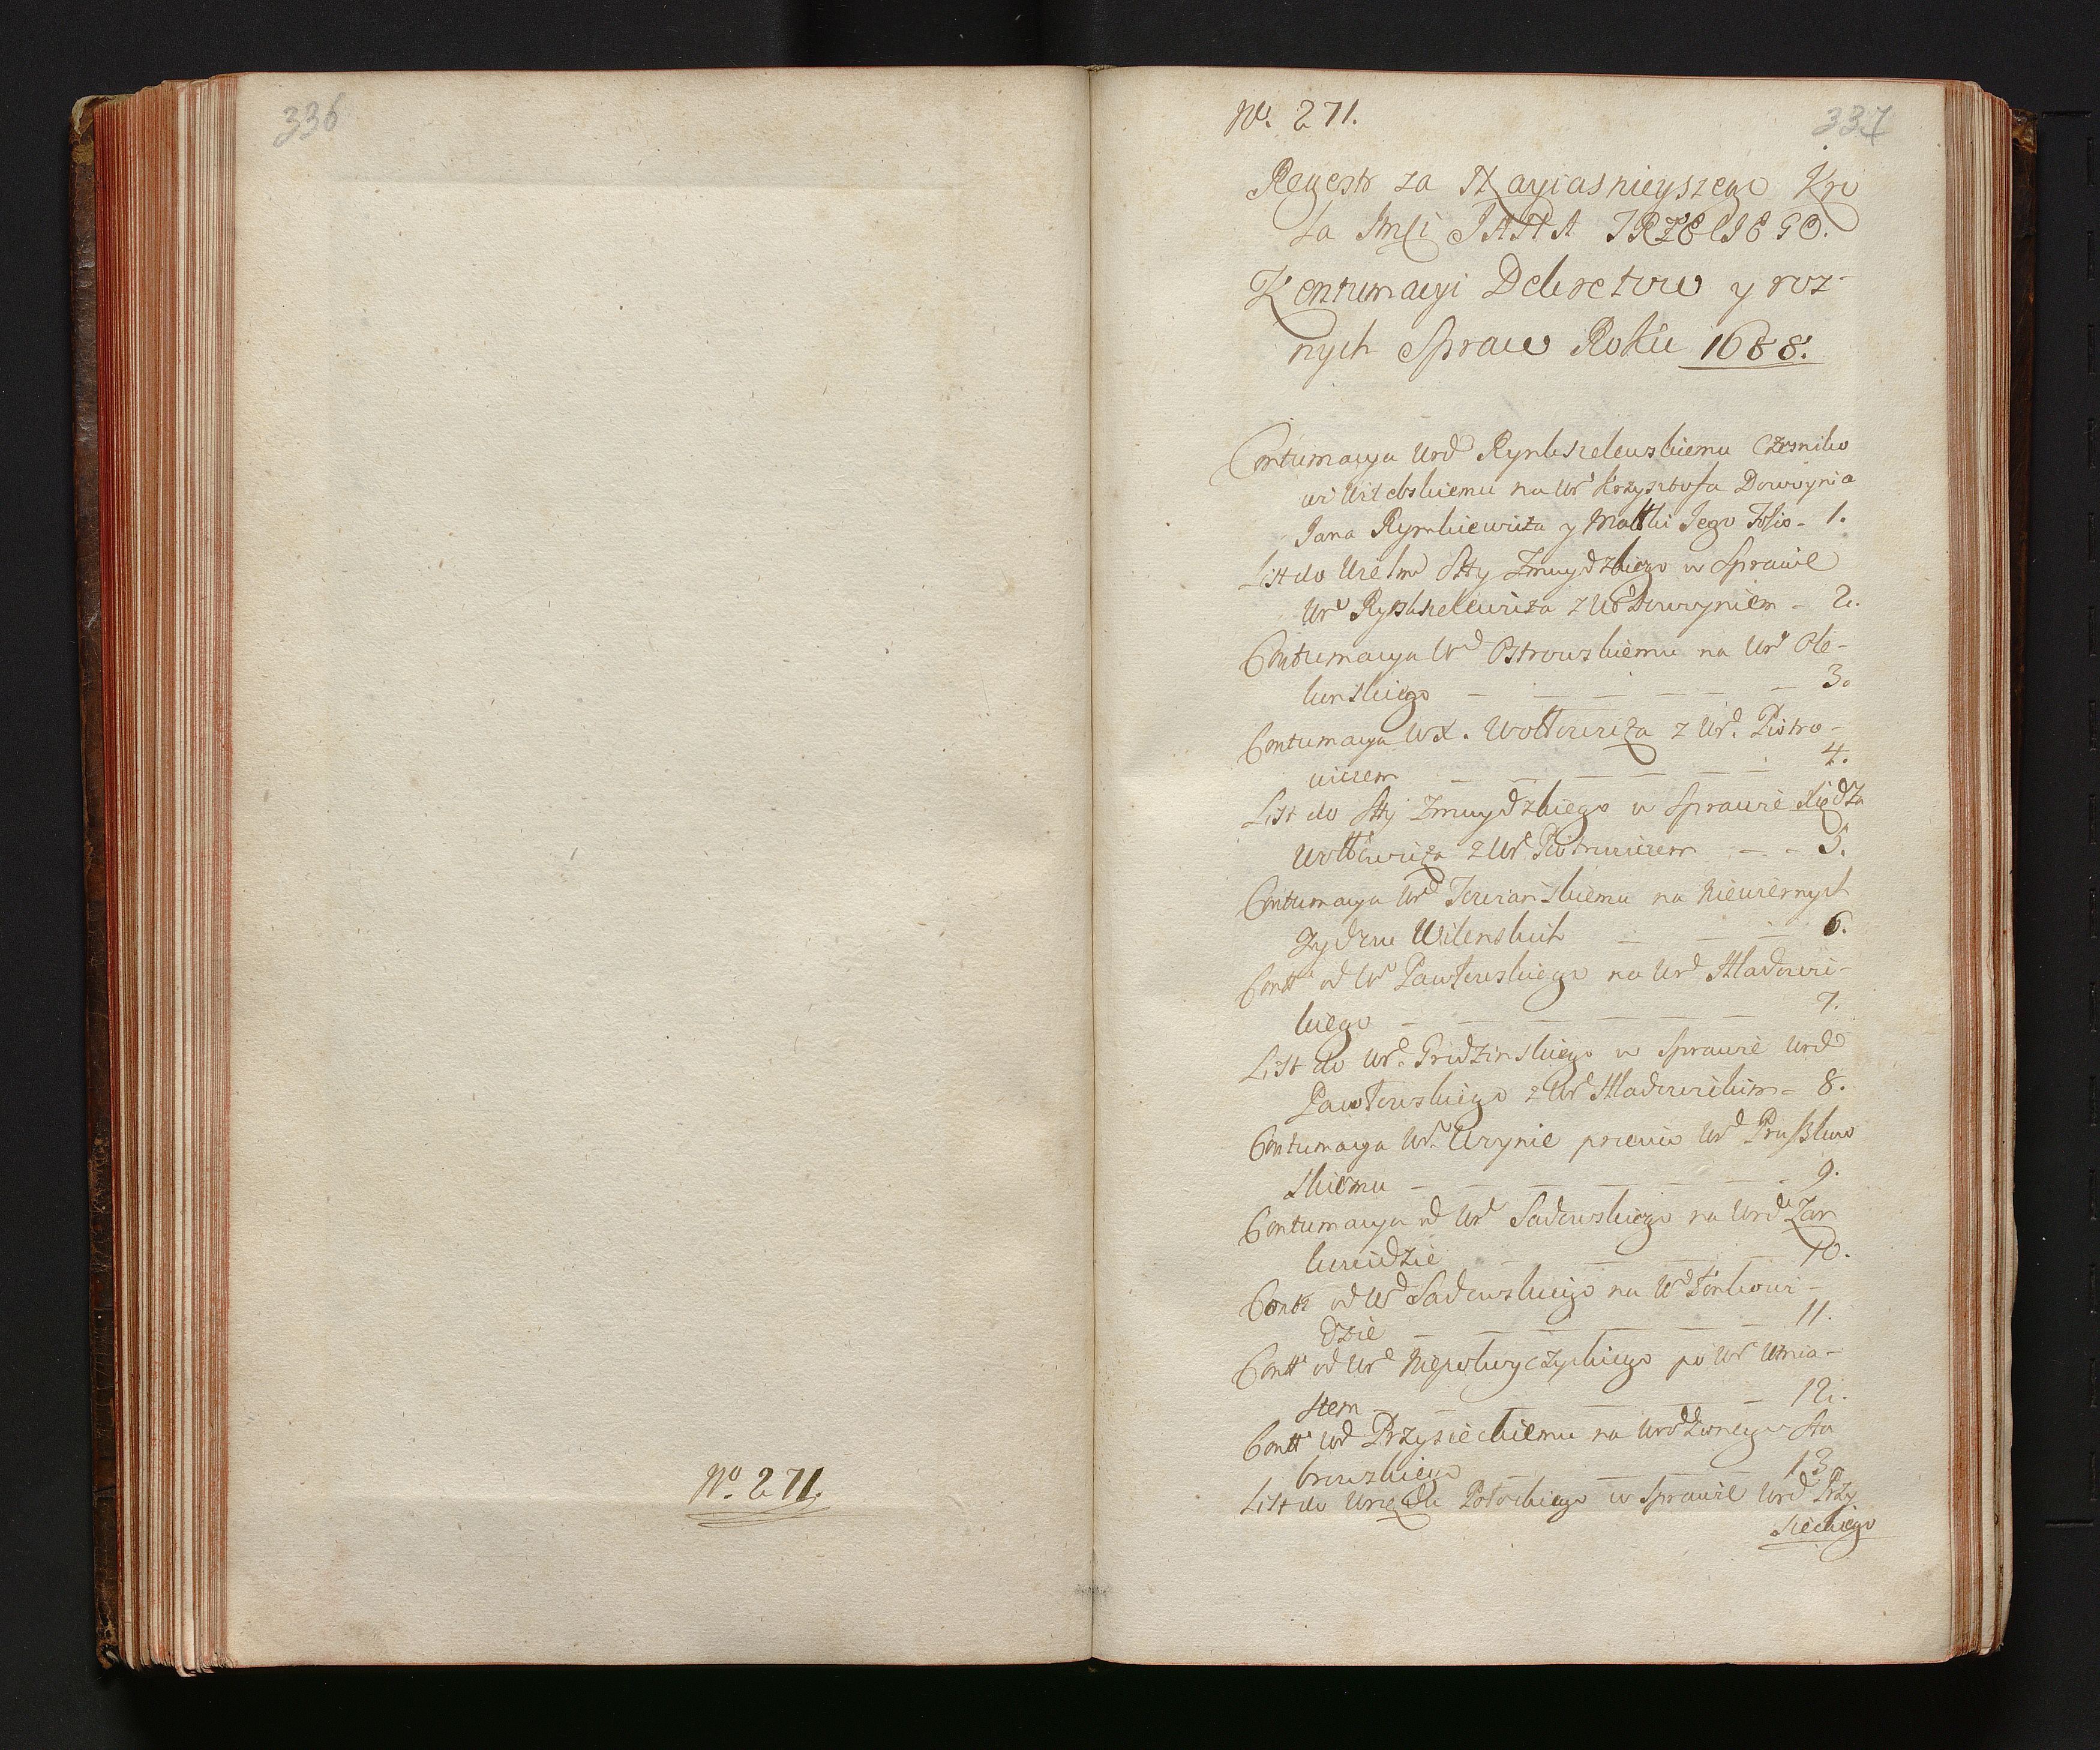 336
No. 271.
No. 271.
337
Regestr za Nayiasnieyszego Kro
la Jmsci JANA TRZECIEGO.
Kontumacyi Dekretow y roz-
nych Spraw Roku 1688.
Contumacya Urd Rynkszelewskiemu Czesniko
wi Witebskiemu na Ur Krzysztofa Dowoyna
Jana Rymkiewicza y Matki Jego Folio - 1.
List do Stty Zmuydzkiego w Sprawie
Ur z Ur Dowoyniem - 2.
Contumacya Ur Ostrowskiemu na Ur Ole-
kinskiego - 3.
Contumacya WX. Wołłowicza z Ur. Piotro-
wiczem - 4.
List do Stty Zmuydzkiego w Sprawie Xiędza
Wołłowicza z Ur Piotrowiczem - - 5.
Contumacya Ur Towianskiemu na Niewiernych
Zydow Wilenskich - 6.
Contt od Ur Pawłowskiego na Urd Hladowic-
kiego - 7.
List do Ur. Grudzinskiego w Sprawie Urd
Pawłowskiego z Ur Hladowickim - 8.
Contumacya Ur. Woynie przeciw Ur Pruszkow
skiemu - 9.
Contumacya od Ur Sadowskiego na Urd Zan
kowidzie - 10.
Contt od Ur Sadowskiego na Ur Tonkowi-
dzie - 11.
Contt od Ur po Ur Unia-
stem - 12.
Contt Urd Przysieckiemu na Urodzonego Sta
browskiego - 13.
List do Urzędu Połockiego w Sprawie Urd Przy
sieckiego